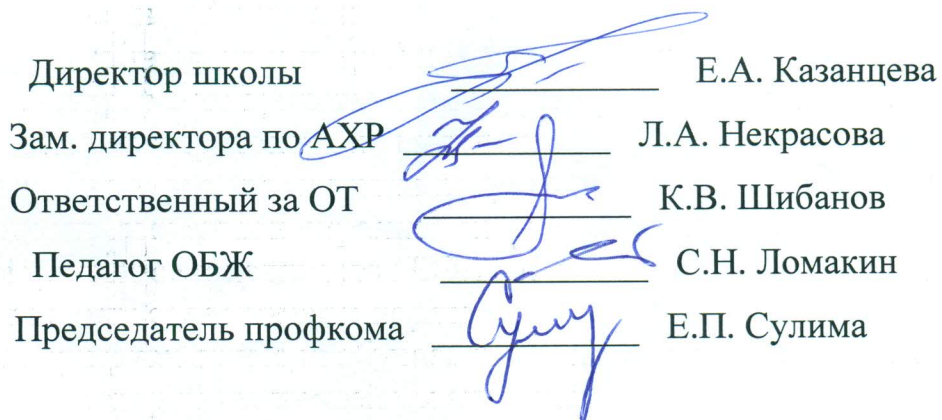 Директор школы Е.А. Казанцева
Зам. директора по АХР Л.А. Некрасова
Ответственный за ОТ К.В. Шибанов
Педагог ОБЖ С.Н. Ломакин
Председатель профкома Е.П. Сулима